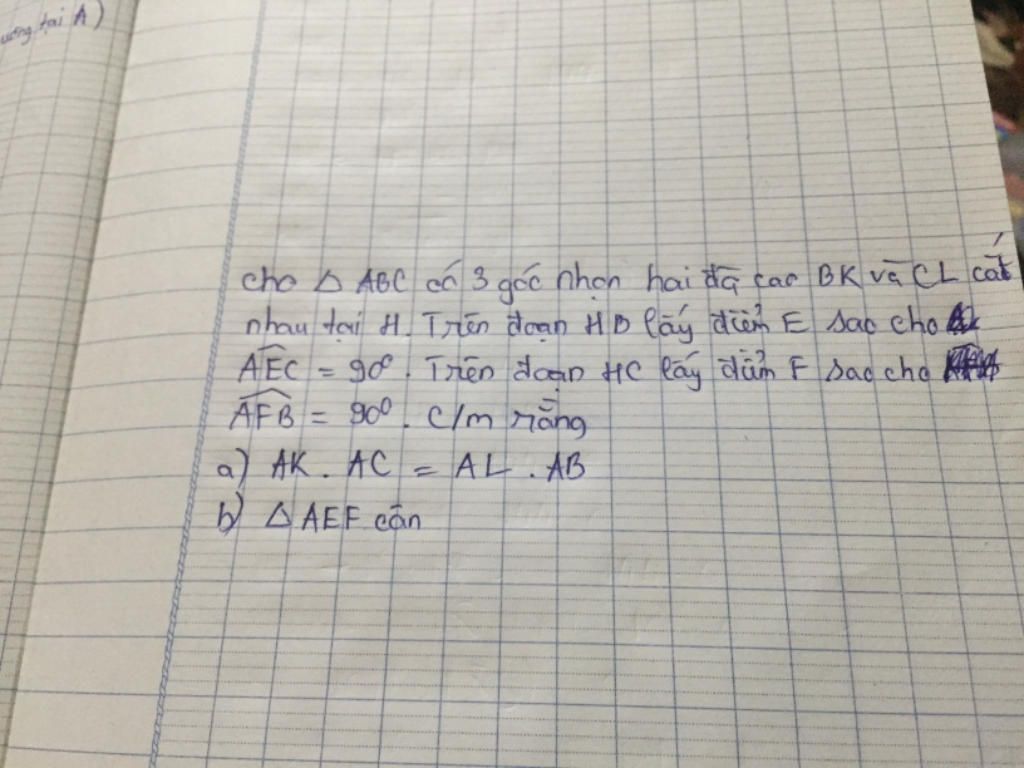 ương tại A)
cho Δ ABC có 3 góc nhọn hai đg cao BK và CL cắt
nhau tại H. Trên đoạn HB lấy điểm E sao cho
AEC = 90⁰. Trên đoạn HC lấy điểm F sao cho
AFB = 90⁰. C/m rằng
a) AK . AC = AL . AB
b) Δ AEF cân